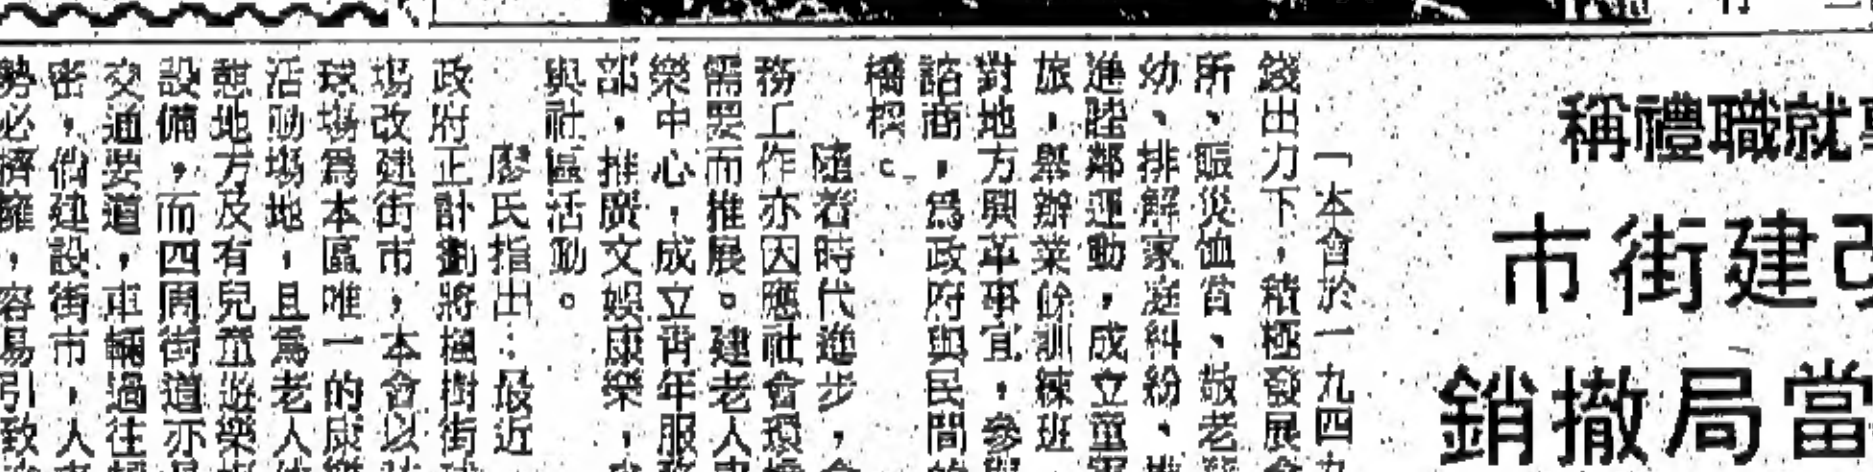 就職禮稱
建街市
當局撤銷
「本會於一九四九
錢出力下，積極發展會
所、賑災恤貧、敬老
幼、排解家庭糾紛、
進睦鄰運動，成立童軍
旅，舉辦業餘訓練班
對地方興革事宜，參與
諮商，爲政府與民間的
橋樑。
隨着時代進步，會
務工作亦因應社會環境
需要而推展。建老人康
樂中心，成立青年服務
部，推廣文娛康樂，
與社區活動。
廖氏指出：最近
政府正計劃將楓樹街球
場改建街市，本會以該
球場爲本區唯一的康樂
活動場地，且爲老人休
憩地方及有兒童遊樂
設備，而四周街道亦是
交通要道，車輛過往
密，倘建設街市，人
勢必擠擁，容易引致